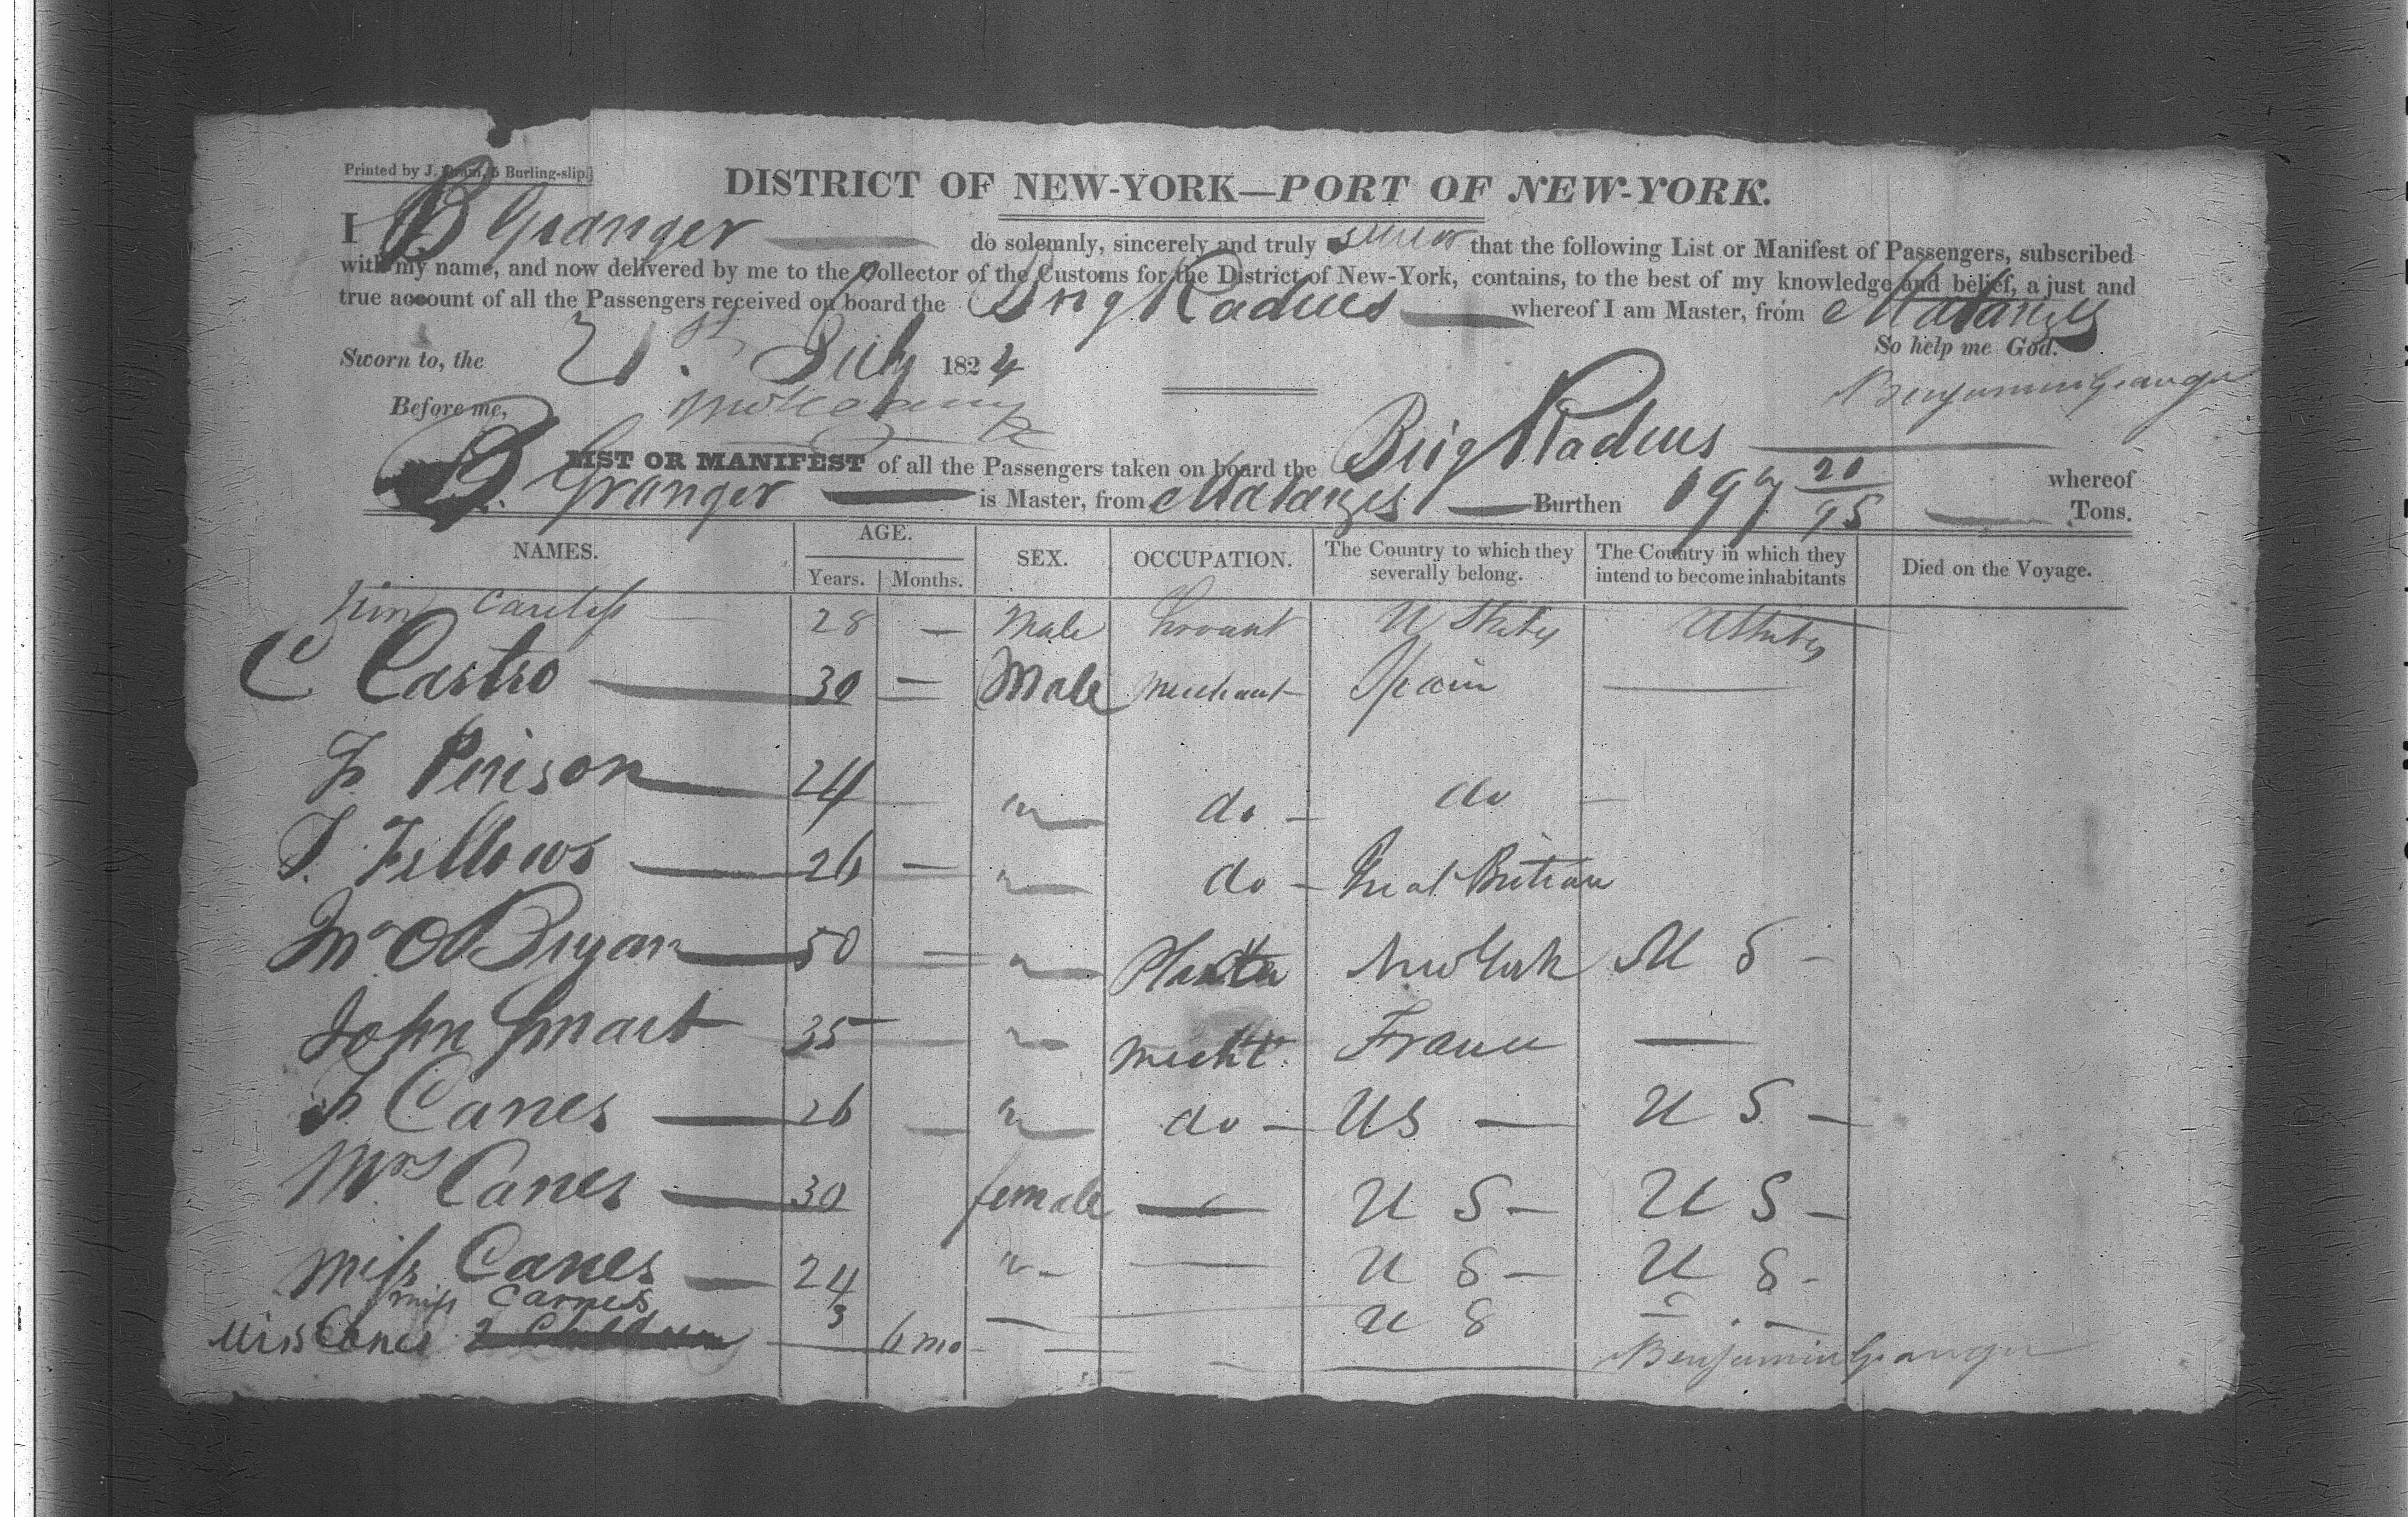 Printed by J. Oram, 5 Burling-slip.]
DISTRICT OF NEW-YORK—PORT OF NEW-YORK.
I B Granger do solemnly, sincerely and truly swear that the following List or Manifest of Passengers, subscribed
with my name, and now delivered by me to the Collector of the Customs for the District of New-York, contains, to the best of my knowledge and belief, a just and
true account of all the Passengers received on board the Brig Radius whereof I am Master, from Matanzes
Sworn to, the 21st. July 1824 So help me God.
Before me, Benjamin Granger
LIST OR MANIFEST of all the Passengers taken on board the Brig Radius whereof
B. Granger is Master, from Matanzes Burthen 197 20/95 Tons.
NAMES. AGE. Years. Months. SEX. OCCUPATION. The Country to which they severally belong. The Country in which they intend to become inhabitants Died on the Voyage.
Careless 28 — Male Servant U States U States
C Castro — 30 — Male Merchant Spain —
Pinison — 24 — " do — do —
Fellows — 26 — " do — Great Britian
O Bryan — 50 — " Planter New York U S —
John Smart 35 — " Mercht. France —
Canes — 26 — " do — US — U S —
Mrs Canes — 30 female — U S — U S —
Miss Canes — 24 " — U S — U S -
Miss Carnes 3 — U S —
Miss Canes 2 Children — 6 mo — Benjamin Granger